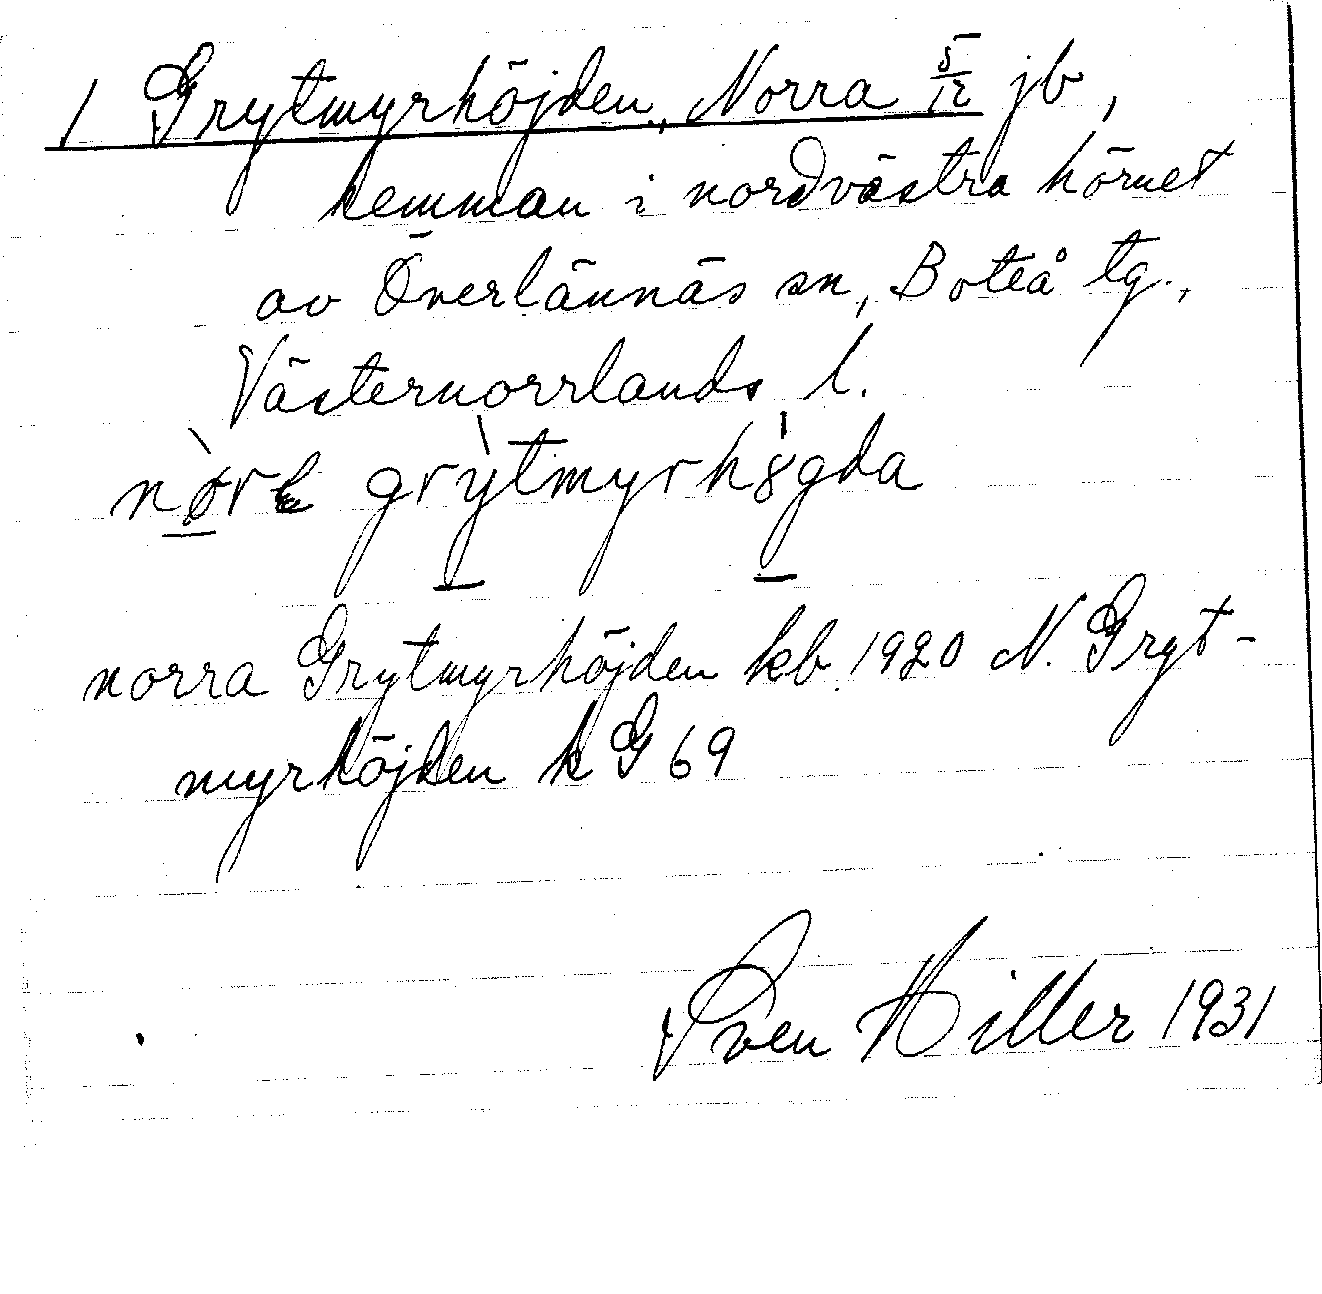 1 Grytmyrhöjden, Norra 5/12 jb,
hemman i nordvästra hörnet
av Överlännäs sn, Boteå tg.,
Västernorrlands l.
grỳtmyrhꝏ̀gda
norra Grytmyrhöjden kb 1920 N. Gryt-
myrhöjden kG 69
Sven Hiller 1931